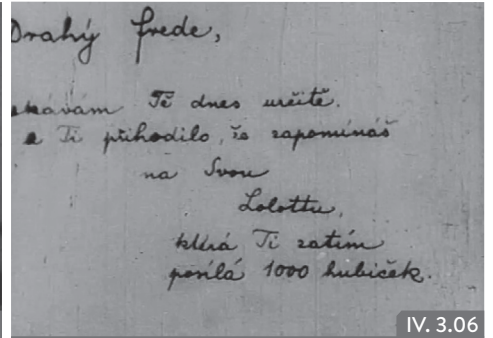 Drahý Frede,
ekávám Tě dnes určitě.
e Ti přihodilo, že zapomínáš
na Svou
Lolottu,
která Ti zatím
posílá 1000 hubiček.
IV. 3.06